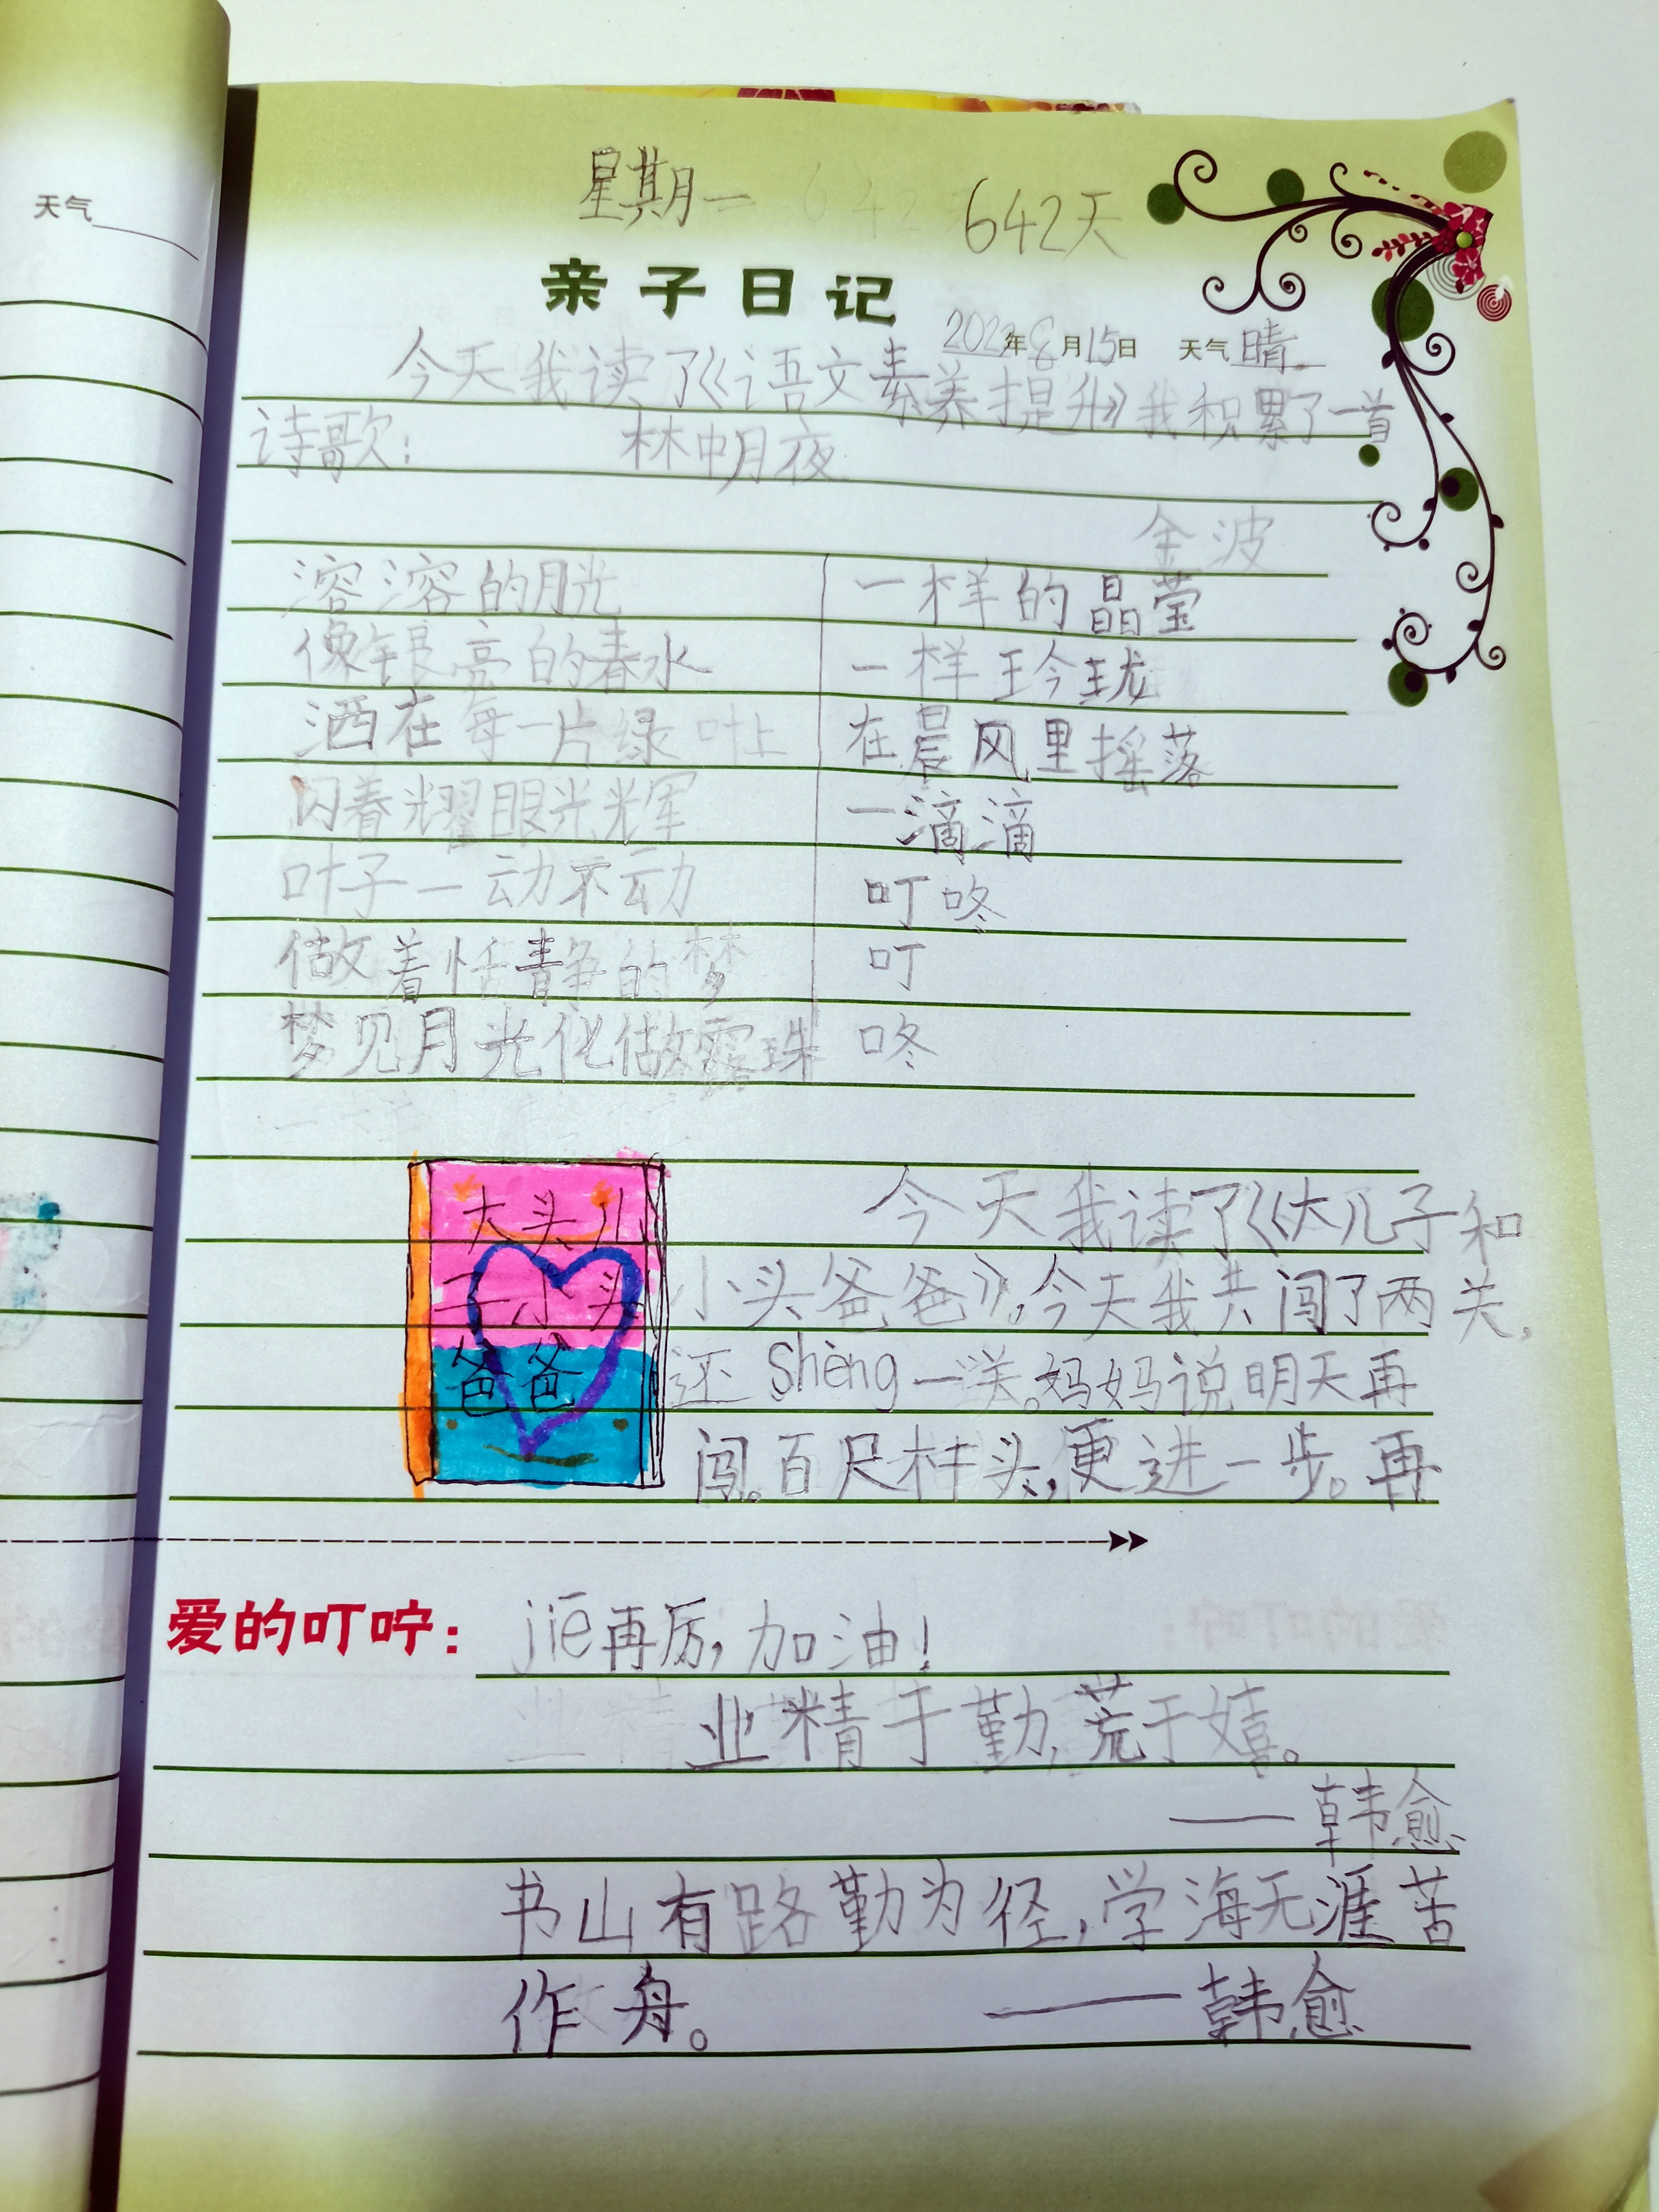 天气
星期一
642天
亲子日记
2022年8月15日 天气晴
今天我读了《语文素养提升》我积累了一首
诗歌：
林中月夜
金波
溶溶的月光
像银亮的春水
洒在每一片绿叶上
闪着光耀眼光光辉
叶子一动不动
做着恬静的梦
梦见月光化做露珠
一样的晶莹
一样玲珑
在晨风里摇落
一滴滴
叮咚
叮
咚
大头儿
子小头
爸爸
今天我读了《大儿子和
小头爸爸》，今天我共闯了两关，
还shèng一关。妈妈说明天再
闯。百尺杆头，更进一步。再
爱的叮咛：
jiē再厉，加油！
业精于勤，荒于嬉。
——韩愈
书山有路勤为径，学海无涯苦
作舟。 ——韩愈